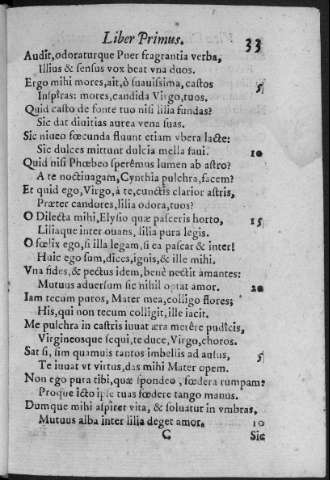 Liber Primus. 33
Audît, odoraturque Puer fragrantia verba,
Illius & sensus vox beat vna duos.
Ergo mihi mores, ait, ô suauissima, castos 5
Inspiras: mores, candida Virgo, tuos.
Quid casto de fonte tuo nisi lilia fundas?
Sic dat diuitias aurea vena suas.
Sic niueo fœcunda fluunt etiam vbera lacte:
Sic dulces mittunt dulcia mella faui. 10
Quid nisi Phœbeo sperêmus lumen ab astro?
A te noctiuagam, Cynthia pulchra, facem?
Et quid ego, Virgo, à te, cunctis clarior astris,
Præter candores, lilia odora, tuos?
O Dilecta mihi, Elysio quæ pasceris horto, 15
Liliaque inter ouans, lilia pura legis.
O fœlix ego, si illa legam, si ea pascar & inter!
Huic ego sum, dices, ignis, & ille mihi.
Vna fides, & pectus idem, benè nectit amantes:
Mutuus aduersum sic nihil optat amor. 20
Iam tecum puros, Mater mea, colligo flores;
His, qui non tecum colligit, ille iacit.
Me pulchra in castris iuuat æra merêre pudicis,
Virgineosque sequi, te duce, Virgo, choros.
Sat si, sim quamuis tantos imbellis ad ausus, 5
Te iuuat vt virtus, das mihi Mater opem.
Non ego pura tibi, quæ spondeo, fœdera rumpam?
Proque icto ipse tuas fœdere tango manus.
Dumque mihi aspiret vita, & soluatur in vmbras,
Mutuus alba inter lilia deget amor. 10
C Sic